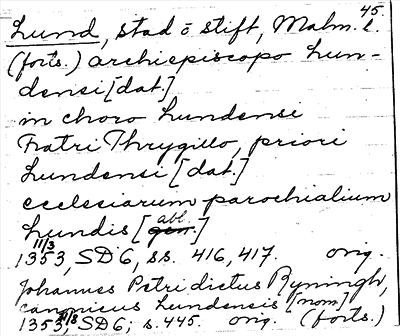 45.
Lund, stad o stift, Malm. l.
(forts.) archiepiscopo Lun-
densi [dat.]
in choro Lundensi
Fratri Thrygillo, priori
Lundensi [dat.]
ecclesiarum parochialium
Lundis [gen. abl.]
1353 11/3, SD 6, ss. 416, 417. orig.
Johannes Petri dictus Ryningh,
canonicus Lundensis [nom]
1353 SD 6, s. 445 orig. (forts.)